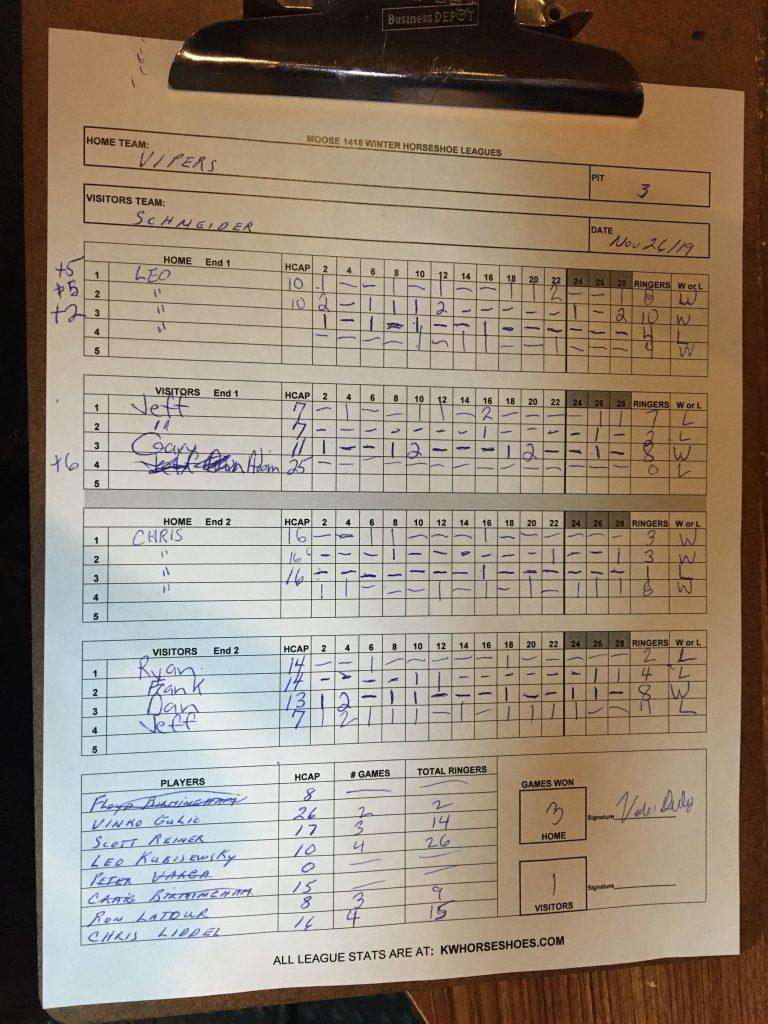 Business DEPOT
MOOSE 1418 WINTER HORSESHOE LEAGUES
HOME TEAM: VIPERS
PIT 3
VISITORS TEAM: SCHNEIDER
DATE Nov 26/19
HOME End 1 HCAP 2 4 6 8 10 12 14 16 18 20 22 24 26 28 RINGERS W or L
+5 1 LEO 10 1 – – 1 – 1 – – 1 1 2 – – 1 8 W
+5 2 " 10 2 – 1 1 1 2 – – – – – 1 – 2 10 W
+2 3 " 1 – 1 – 1 – 1 – – – – – – – 4 L
4 " – – – – 1 – 1 1 – – 1 – – – 4 W
5
VISITORS End 1 HCAP 2 4 6 8 10 12 14 16 18 20 22 24 26 28 RINGERS W or L
1 Jeff 7 – 1 – – 1 1 – 2 – – – – 1 1 7 L
2 " 7 – – – – – – – 1 – – – – 1 – 2 L
3 Gary 11 1 – – 1 2 – – – 1 2 – – 1 – 8 W
+6 4 Adam 25 – – – – – – – – – – – – – – 0 L
5
HOME End 2 HCAP 2 4 6 8 10 12 14 16 18 20 22 24 26 28 RINGERS W or L
1 CHRIS 16 – – 1 1 – – – 1 – – – – – – 3 W
2 " 16 – – – 1 – – – – – – 1 – – 1 3 W
3 " 16 – – – – – – – 1 – – – – – – 1 L
4 " 1 1 – – 1 – – – 1 – 1 – 1 1 8 W
5
VISITORS End 2 HCAP 2 4 6 8 10 12 14 16 18 20 22 24 26 28 RINGERS W or L
1 Ryan 14 – – 1 – – – – – 1 – – – – – 2 L
2 Frank 14 – – – – 1 1 – – – – – – 1 1 4 L
3 Dan 13 1 2 – 1 1 – – – 1 – – 1 1 – 8 W
4 Jeff 7 1 2 1 1 1 – 1 – 1 1 1 1 – – 11 L
5
PLAYERS HCAP # GAMES TOTAL RINGERS
FLOYD BIRMINGHAM 8 – –
VINKO GULIC 26 2 2
SCOTT REINER 17 3 14
LEO KUBISEWSKY 10 4 26
PETER VARGA 0 – –
CRAIG BIRMINGHAM 15 – –
RON LATOUR 8 3 9
CHRIS LIDDEL 16 4 15
GAMES WON
3
HOME
Signature
1
VISITORS
Signature
ALL LEAGUE STATS ARE AT: KWHORSESHOES.COM